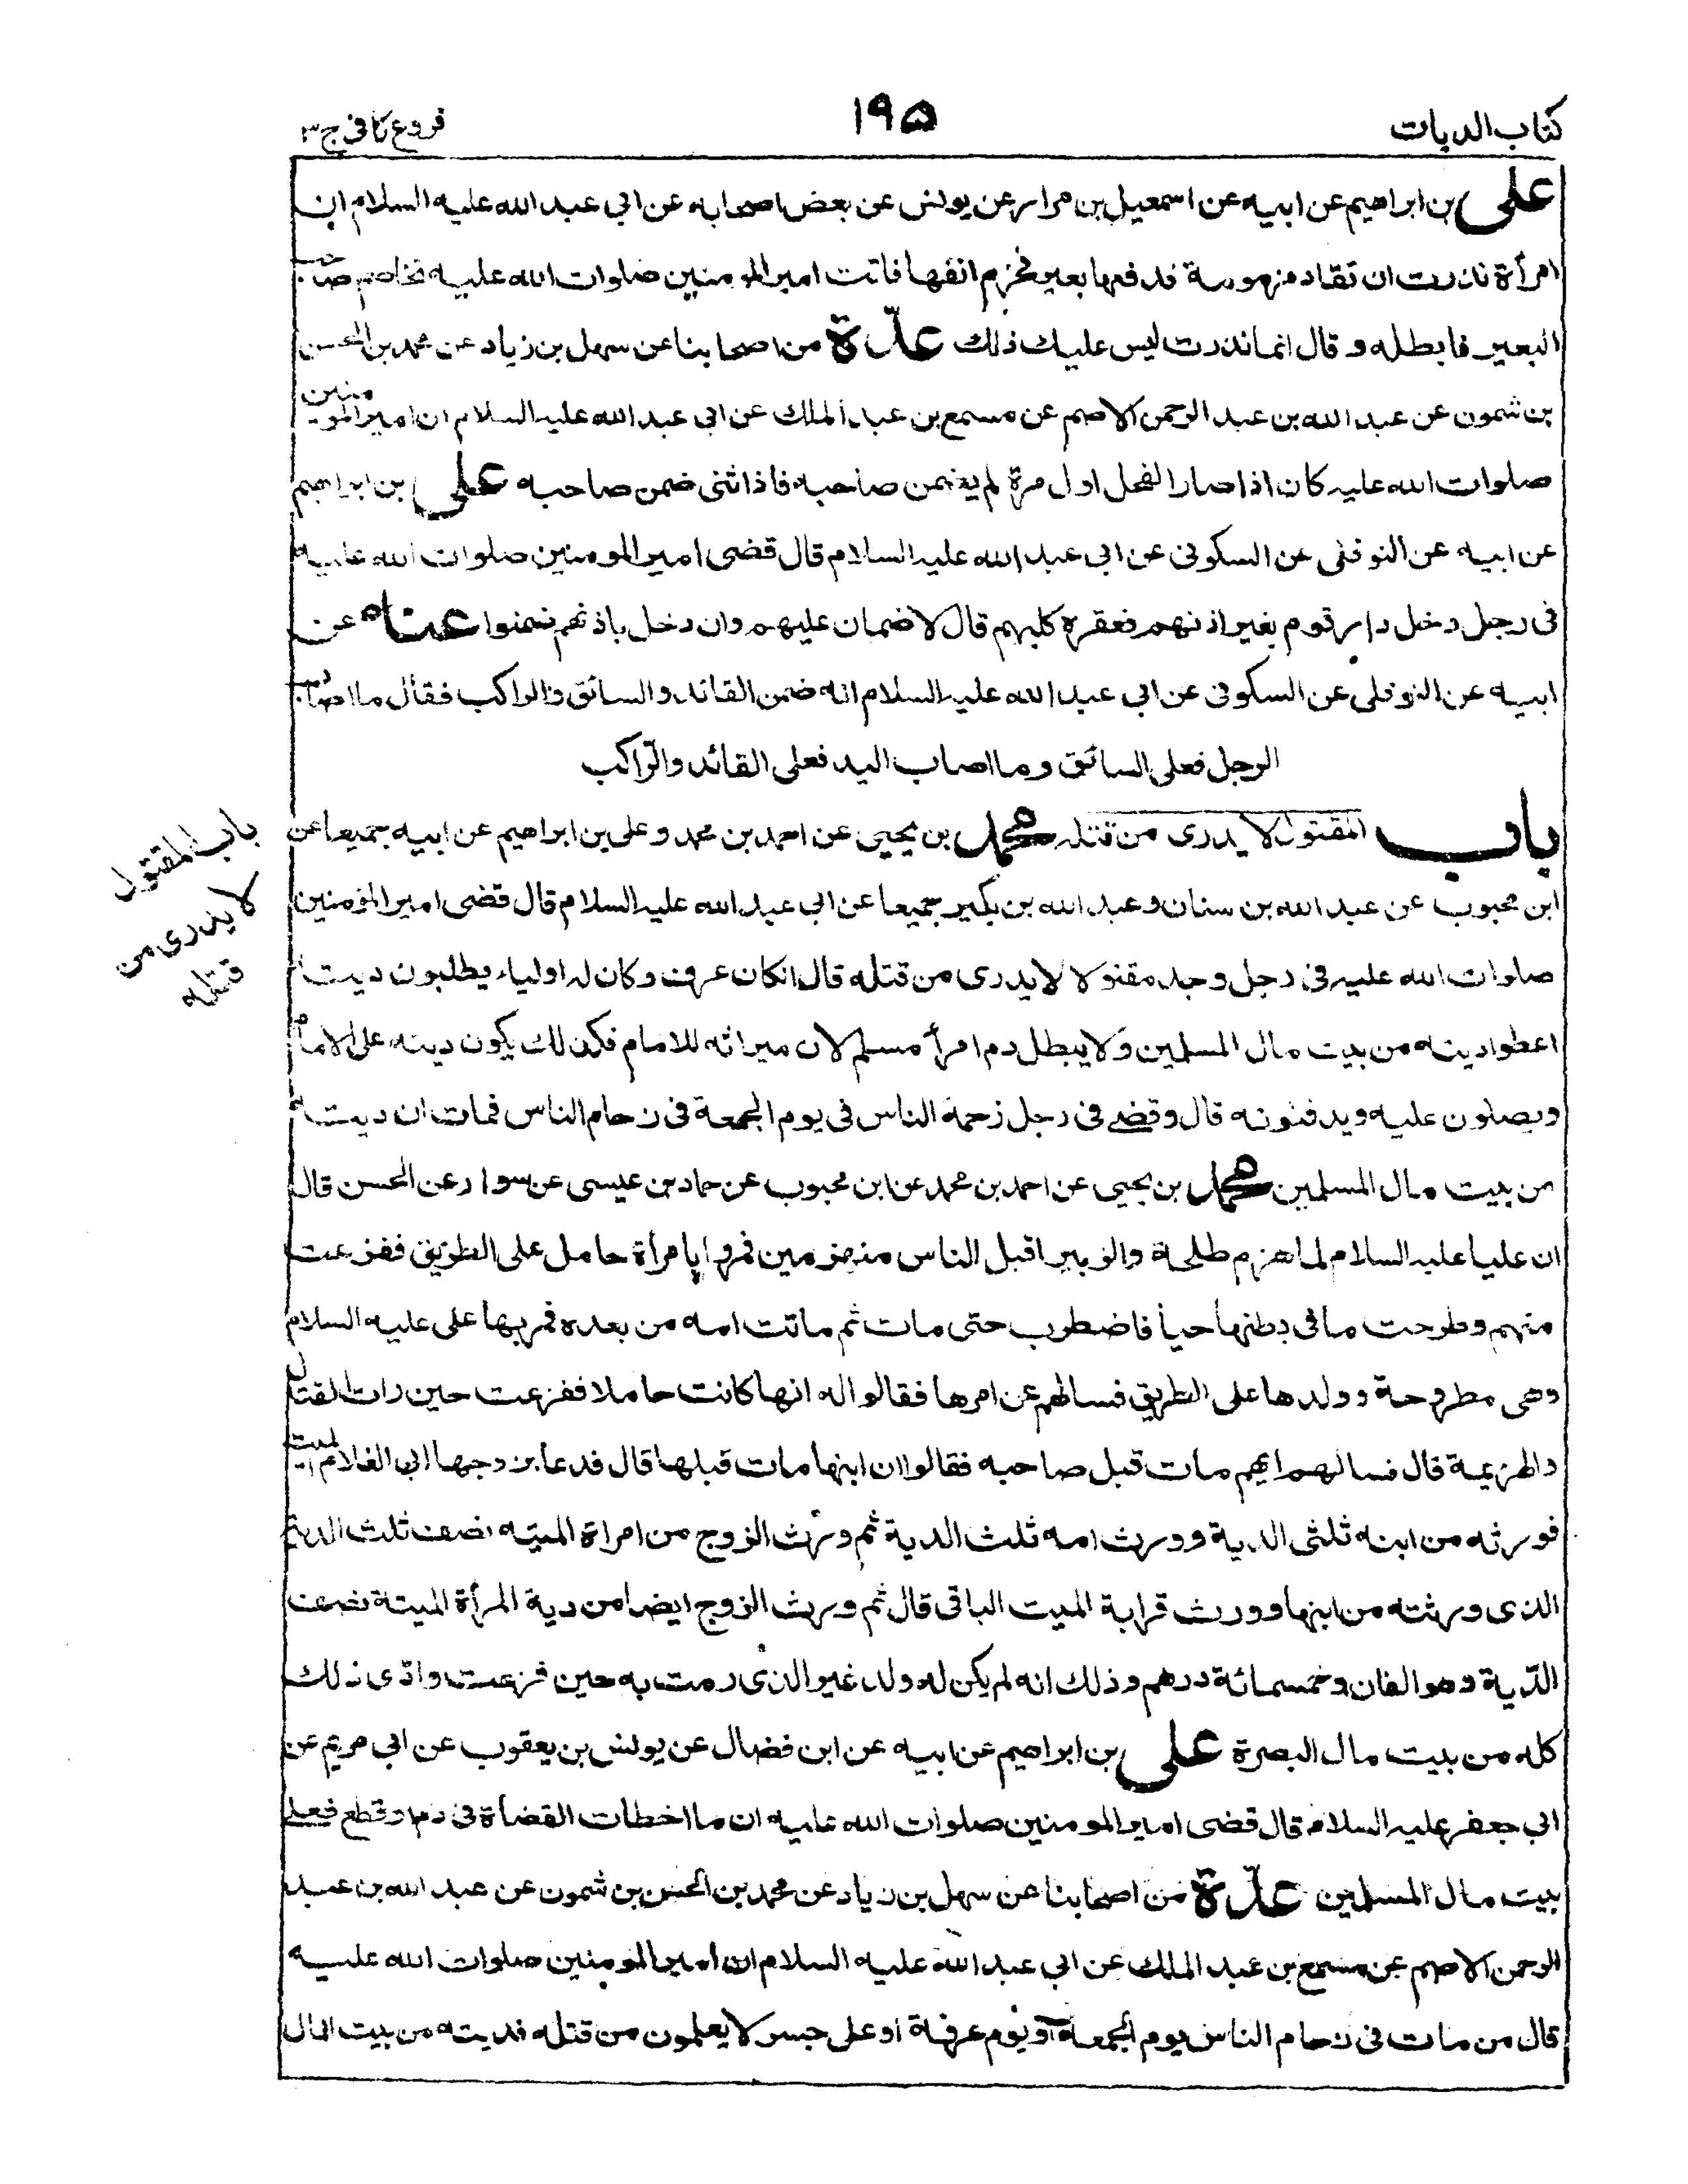 كتاب الديات
١٩٥
فروع كافى ج٣
على بن ابراهيم عن ابيه عن اسمعيل بن مرار عن يونس عن بعض اصحابه عن ابي عبد الله عليه السلام ان
امرأة نذرت ان تقاد مزمومة فدفعها بعير فخزم انفها فاتت امير المومنين صلوات الله عليه تخاصم صاحب
البعير فابطله و قال انما نذرت ليس عليك ذلك عدّة من اصحابنا عن سهل بن زياد عن محمد بن الحسن
بن شمون عن عبد الله بن عبد الرحمن الاصم عن مسمع بن عبد الملك عن ابي عبد الله عليه السلام ان امير المومنين
صلوات الله عليه كان اذا صار الفحل اول مرة لم يضمن صاحبه فاذا ثنى ضمن صاحبه على بن ابراهيم
عن ابيه عن النوفلى عن السكونى عن ابي عبد الله عليه السلام قال قضى امير المومنين صلوات الله عليه
فى رجل دخل دار قوم بغير اذنهم فعقره كلبهم قال لا ضمان عليهم وان دخل باذنهم ضمنوا عنه عن
ابيه عن النوفلى عن السكونى عن ابي عبد الله عليه السلام انه ضمن القائد والسائق والراكب فقال ما اصاب
الرجل فعلى السائق وما اصاب اليد فعلى القائد والرّاكب
باب المقتول لا يدرى من قتله محمد بن يحيى عن احمد بن محمد و على بن ابراهيم عن ابيه جميعا عن
ابن محبوب عن عبد الله بن سنان وعبد الله بن بكير جميعا عن ابي عبد الله عليه السلام قال قضى امير المؤمنين
صلوات الله عليه فى رجل وجد مقتولا لا يدرى من قتله قال انكان عرف وكان له اولياء يطلبون ديته
اعطوا ديته من بيت مال المسلمين ولا يبطل دم امرأ مسلم لان ميراثه للامام فكذلك يكون ديته على الامام
ويصلون عليه ويدفنونه قال وقضى فى رجل زحمة الناس فى يوم الجمعة فى زحام الناس فمات ان ديته
من بيت مال المسلمين محمد بن يحيى عن احمد بن محمد عن ابن محبوب عن حماد بن عيسى عن سوار عن الحسن قال
ان عليا عليه السلام لما هزم طلحة والزبير اقبل الناس منهزمين فمروا بامرأة حامل على الطريق ففزعت
منهم وطرحت ما فى بطنها حيا فاضطرب حتى مات ثم ماتت امه من بعده فمر بها على عليه السلام
وهى مطروحة وولدها على الطريق فسالهم عن امرها فقالوا له انها كانت حاملا ففزعت حين رات القتال
والهزيمة قال فسالهم ايهم مات قبل صاحبه فقالوا ان ابنها مات قبلها قال فدعا بزوجها ابى الغلام الميت
فورثه من ابنه ثلثى الدية وورث امه ثلث الدية ثم ورث الزوج من امراة الميته نصف ثلث الدية
الذى ورثته من ابنها وورث قرابة الميت الباقى قال ثم ورث الزوج ايضا من دية المرأة الميتة نصف
الدّية وهو الفان وخمسمائة درهم وذلك انه لم يكن له ولد غير الذى رمت به حين فزعت وادّى ذلك
كله من بيت مال البصرة على بن ابراهيم عن ابيه عن ابن فضال عن يونس بن يعقوب عن ابي مريم عن
ابي جعفر عليه السلام قال قضى امير المومنين صلوات الله عليه ان ما اخطات القضاة فى دم او قطع فعلى
بيت مال المسلمين عدّة من اصحابنا عن سهل بن زياد عن محمد بن الحسن بن شمون عن عبد الله بن عبد
الرحمن الاصم عن مسمع بن عبد الملك عن ابي عبد الله عليه السلام ان امير المومنين صلوات الله عليه
قال من مات فى زحام الناس يوم الجمعة او يوم عرفة او على جسر لا يعلمون من قتله فديته من بيت المال
باب المقتول
لا يدرى من
قتله